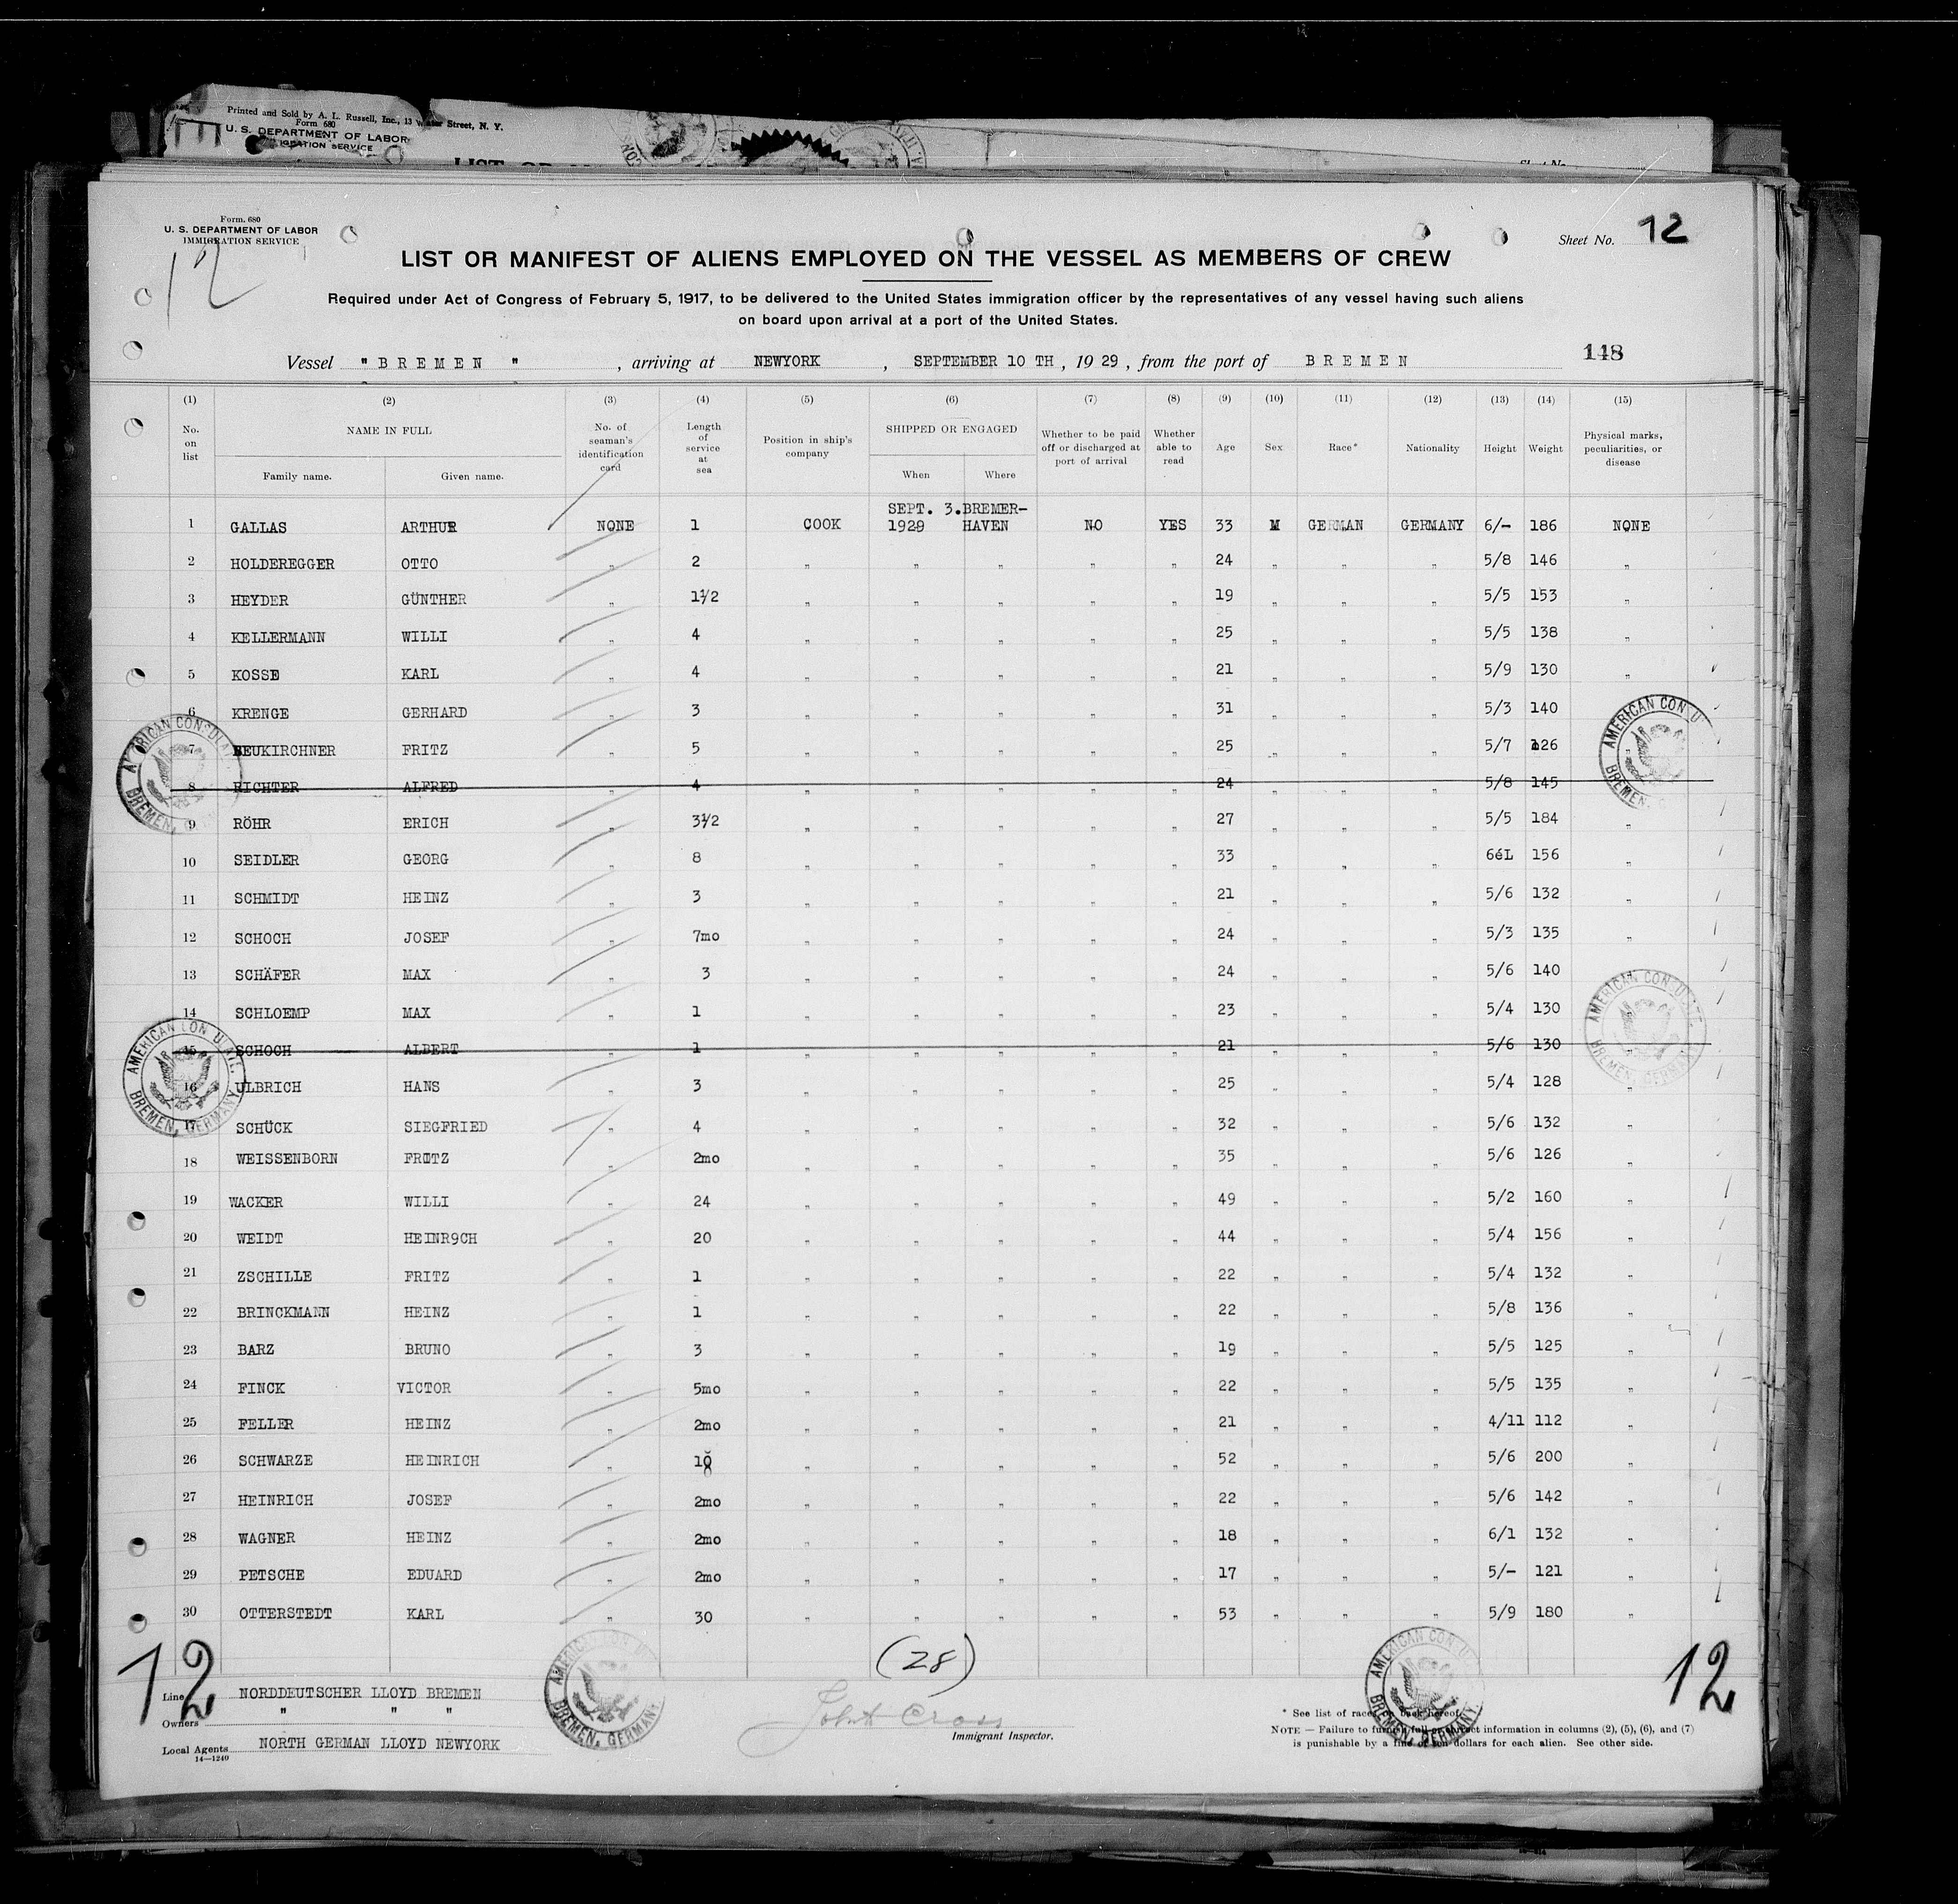 Printed and Sold by A. L. Russell, Inc., 13 Water Street, N. Y.
Form 680
U. S. DEPARTMENT OF LABOR
IGRATION SERVICE
Form. 680
U. S. DEPARTMENT OF LABOR
IMMIGRATION SERVICE
12
Sheet No. 12
LIST OR MANIFEST OF ALIENS EMPLOYED ON THE VESSEL AS MEMBERS OF CREW
Required under Act of Congress of February 5, 1917, to be delivered to the United States immigration officer by the representatives of any vessel having such aliens
on board upon arrival at a port of the United States.
Vessel " BREMEN " , arriving at NEWYORK , SEPTEMBER 10 TH , 19 29 , from the port of BREMEN 148
(1) (2) (3) (4) (5) (6) (7) (8) (9) (10) (11) (12) (13) (14) (15)
No. on list NAME IN FULL Family name. Given name. No. of seaman's identification card Length of service at sea Position in ship's company SHIPPED OR ENGAGED When Where Whether to be paid off or discharged at port of arrival Whether able to read Age Sex Race* Nationality Height Weight Physical marks, peculiarities, or disease
1 GALLAS ARTHUR NONE 1 COOK SEPT. 3. 1929 BREMER-HAVEN NO YES 33 M GERMAN GERMANY 6/- 186 NONE
2 HOLDEREGGER OTTO " 2 " " " " " 24 " " " 5/8 146 "
3 HEYDER GÜNTHER " 1½ " " " " " 19 " " " 5/5 153 "
4 KELLERMANN WILLI " 4 " " " " " 25 " " " 5/5 138 "
5 KOSSE KARL " 4 " " " " " 21 " " " 5/9 130 "
6 KRENGE GERHARD " 3 " " " " " 31 " " " 5/3 140 "
7 NEUKIRCHNER FRITZ " 5 " " " " " 25 " " " 5/7 126 "
8 RICHTER ALFRED " 4 " " " " " 24 " " " 5/8 145 "
9 RÖHR ERICH " 3½ " " " " " 27 " " " 5/5 184 "
10 SEIDLER GEORG " 8 " " " " " 33 " " " 6éL 156 "
11 SCHMIDT HEINZ " 3 " " " " " 21 " " " 5/6 132 "
12 SCHOCH JOSEF " 7mo " " " " " 24 " " " 5/3 135 "
13 SCHÄFER MAX " 3 " " " " " 24 " " " 5/6 140 "
14 SCHLOEMP MAX " 1 " " " " " 23 " " " 5/4 130 "
15 SCHOCH ALBERT " 1 " " " " " 21 " " " 5/6 130 "
16 ULBRICH HANS " 3 " " " " " 25 " " " 5/4 128 "
17 SCHÜCK SIEGFRIED " 4 " " " " " 32 " " " 5/6 132 "
18 WEISSENBORN FRITZ " 2mo " " " " " 35 " " " 5/6 126 "
19 WACKER WILLI " 24 " " " " " 49 " " " 5/2 160 "
20 WEIDT HEINR9CH " 20 " " " " " 44 " " " 5/4 156 "
21 ZSCHILLE FRITZ " 1 " " " " " 22 " " " 5/4 132 "
22 BRINCKMANN HEINZ " 1 " " " " " 22 " " " 5/8 136 "
23 BARZ BRUNO " 3 " " " " " 19 " " " 5/5 125 "
24 FINCK VICTOR " 5mo " " " " " 22 " " " 5/5 135 "
25 FELLER HEINZ " 2mo " " " " " 21 " " " 4/11 112 "
26 SCHWARZE HEINRICH " " " " " " 52 " " " 5/6 200 "
27 HEINRICH JOSEF " 2mo " " " " " 22 " " " 5/6 142 "
28 WAGNER HEINZ " 2mo " " " " " 18 " " " 6/1 132 "
29 PETSCHE EDUARD " 2mo " " " " " 17 " " " 5/- 121 "
30 OTTERSTEDT KARL " 30 " " " " " 53 " " " 5/9 180 "
AMERICAN CONSULATE BREMEN, GERMANY
AMERICAN CONSULATE BREMEN, GERMANY
AMERICAN CONSULATE BREMEN, GERMANY
AMERICAN CONSULATE BREMEN, GERMANY
AMERICAN CONSULATE BREMEN, GERMANY
AMERICAN CONSULATE BREMEN, GERMANY
12 (28) 12
Line NORDDEUTSCHER LLOYD BREMEN
Owners " " "
Local Agents NORTH GERMAN LLOYD NEWYORK
14—1240
John Cross
Immigrant Inspector.
* See list of races on back hereof.
NOTE — Failure to furnish full or correct information in columns (2), (5), (6), and (7)
is punishable by a fine of ten dollars for each alien. See other side.